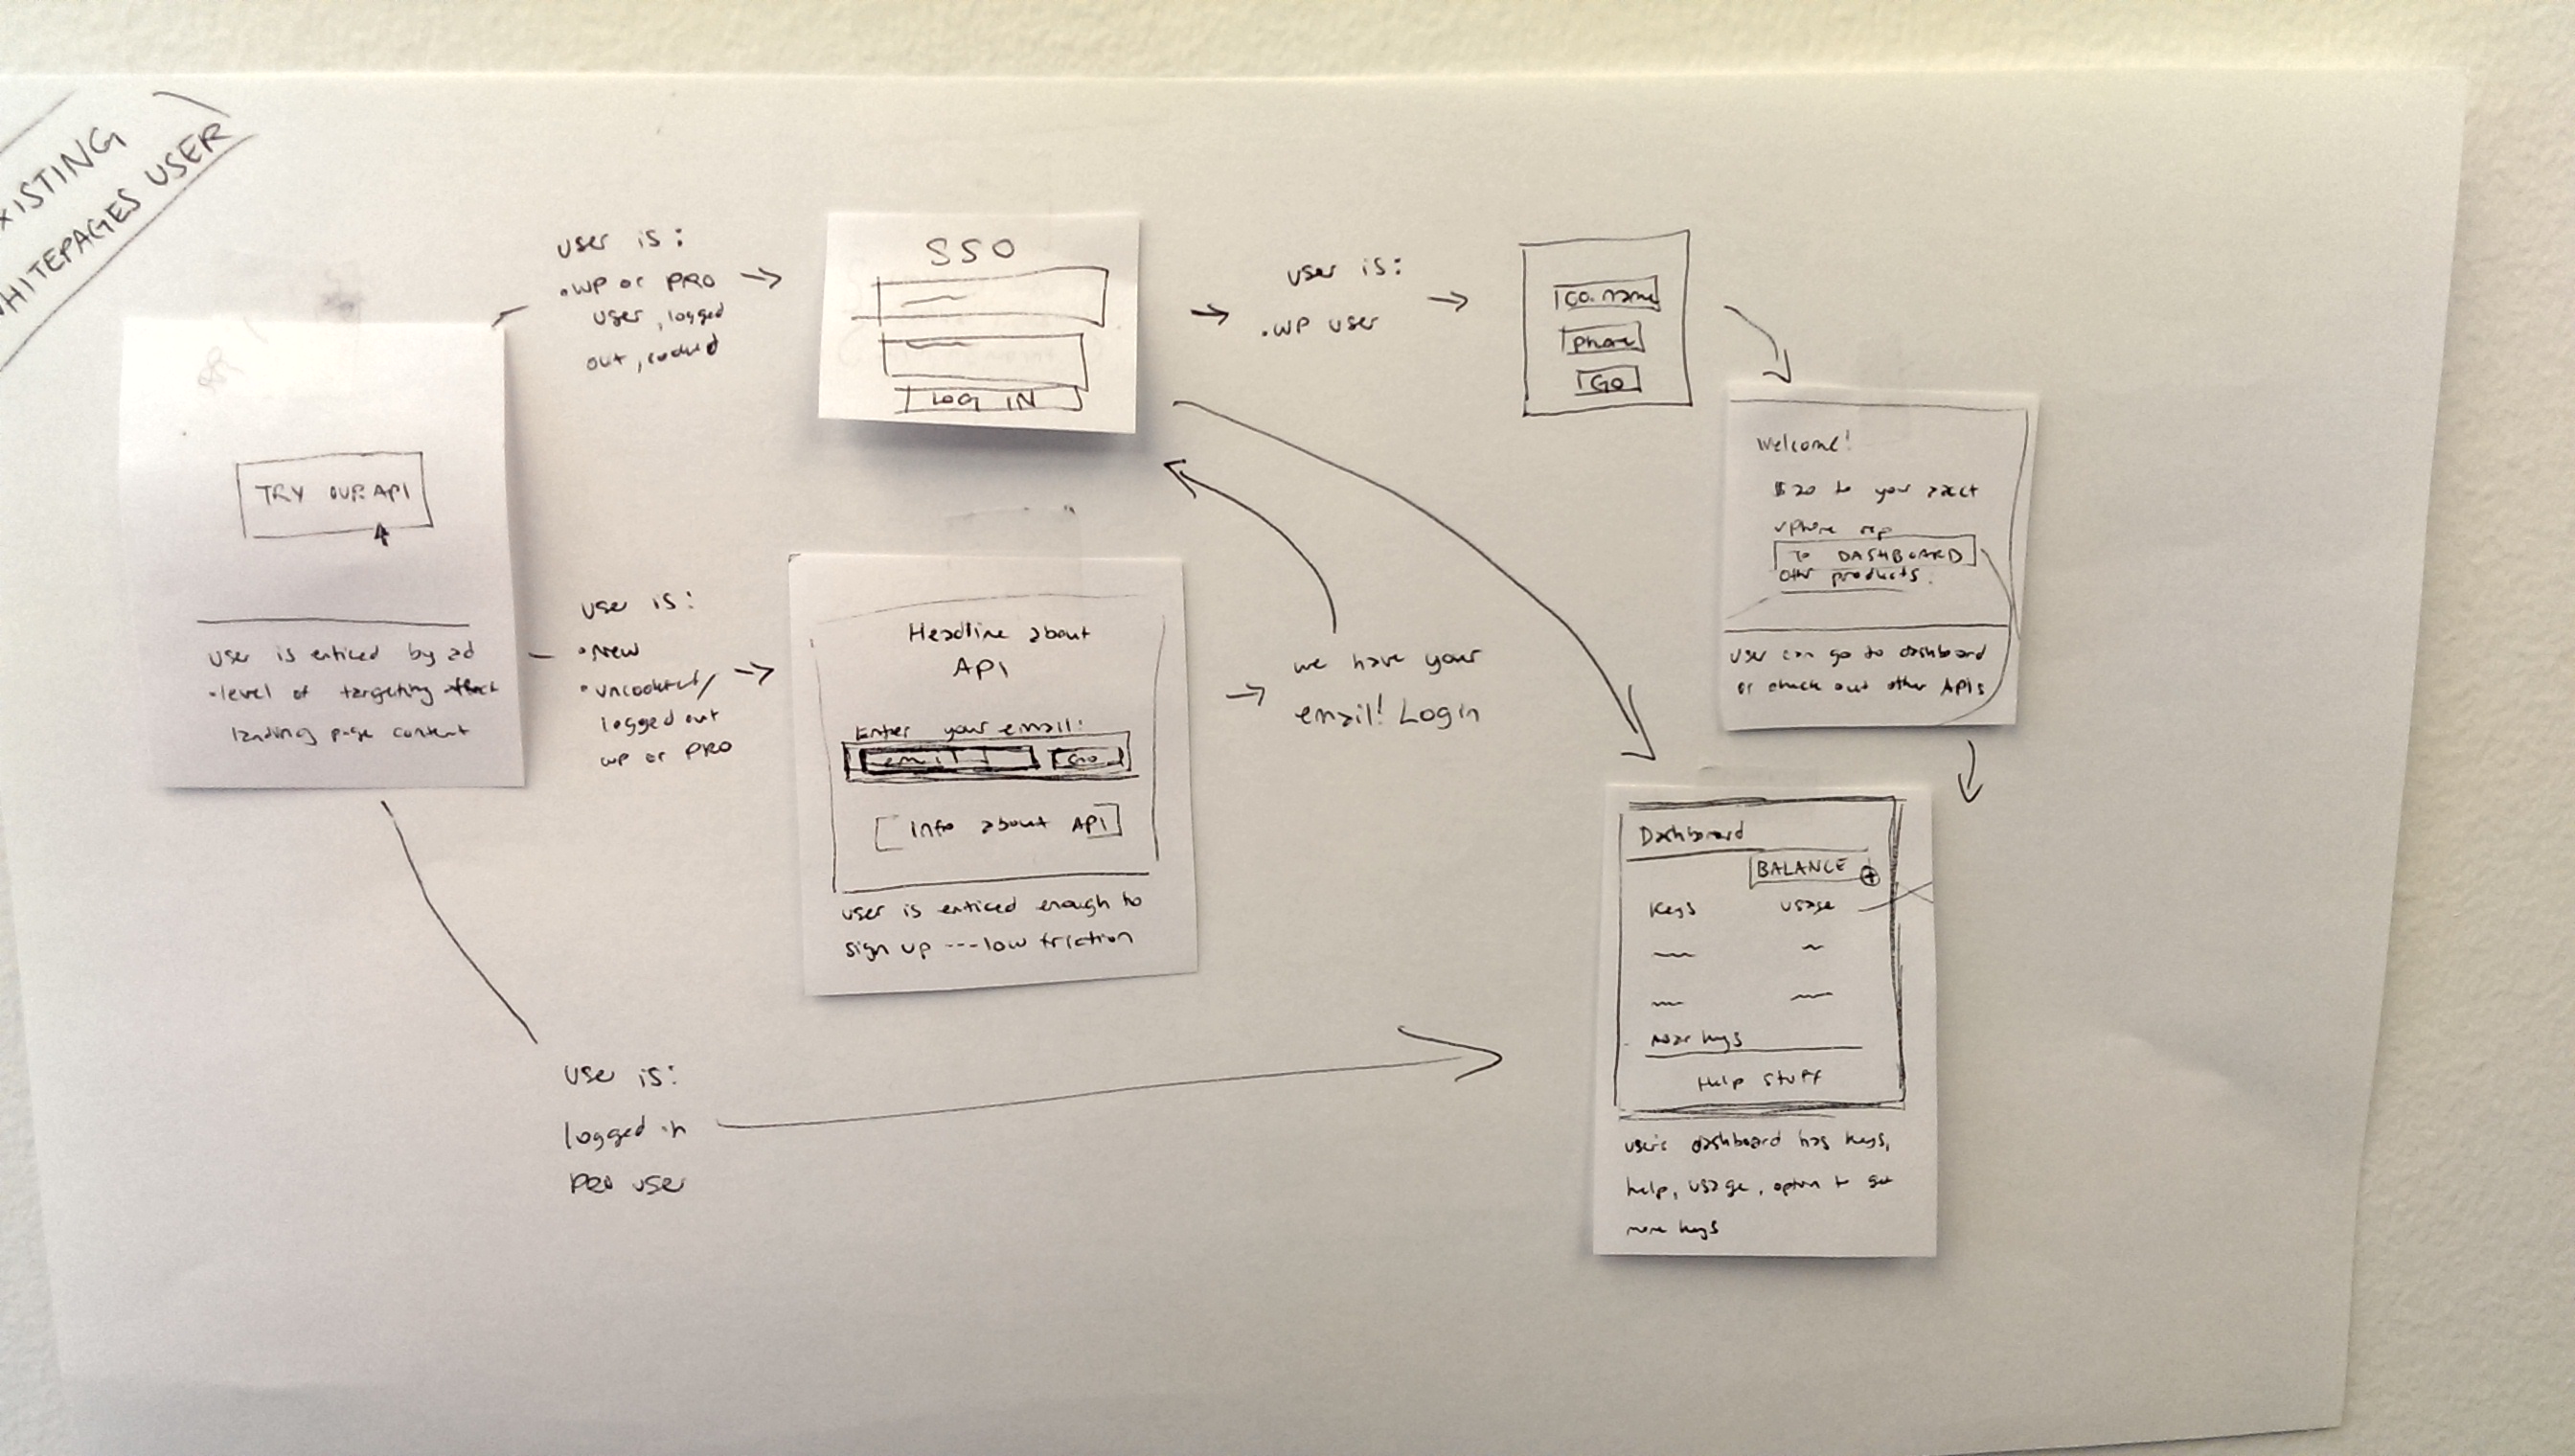 EXISTING
WHITEPAGES USER
TRY OUR API
user is enticed by ad
• level of targeting
landing page content
user is:
• WP or PRO
user, logged
out, cookied
SSO
LOG IN
user is:
• WP user
co. name
phone
GO
Welcome!
$20 to your acct
phone rep
TO DASHBOARD
other products
user can go to dashboard
or check out other APIs
user is:
• New
• uncookied/
logged out
WP or PRO
Headline about
API
Enter your email:
email
Go
Info about API
user is enticed enough to
sign up --- low friction
we have your
email! Login
user is:
logged in
PRO user
Dashboard
BALANCE +
Keys usage
Help stuff
user's dashboard has keys,
help, usage, option to get
more keys